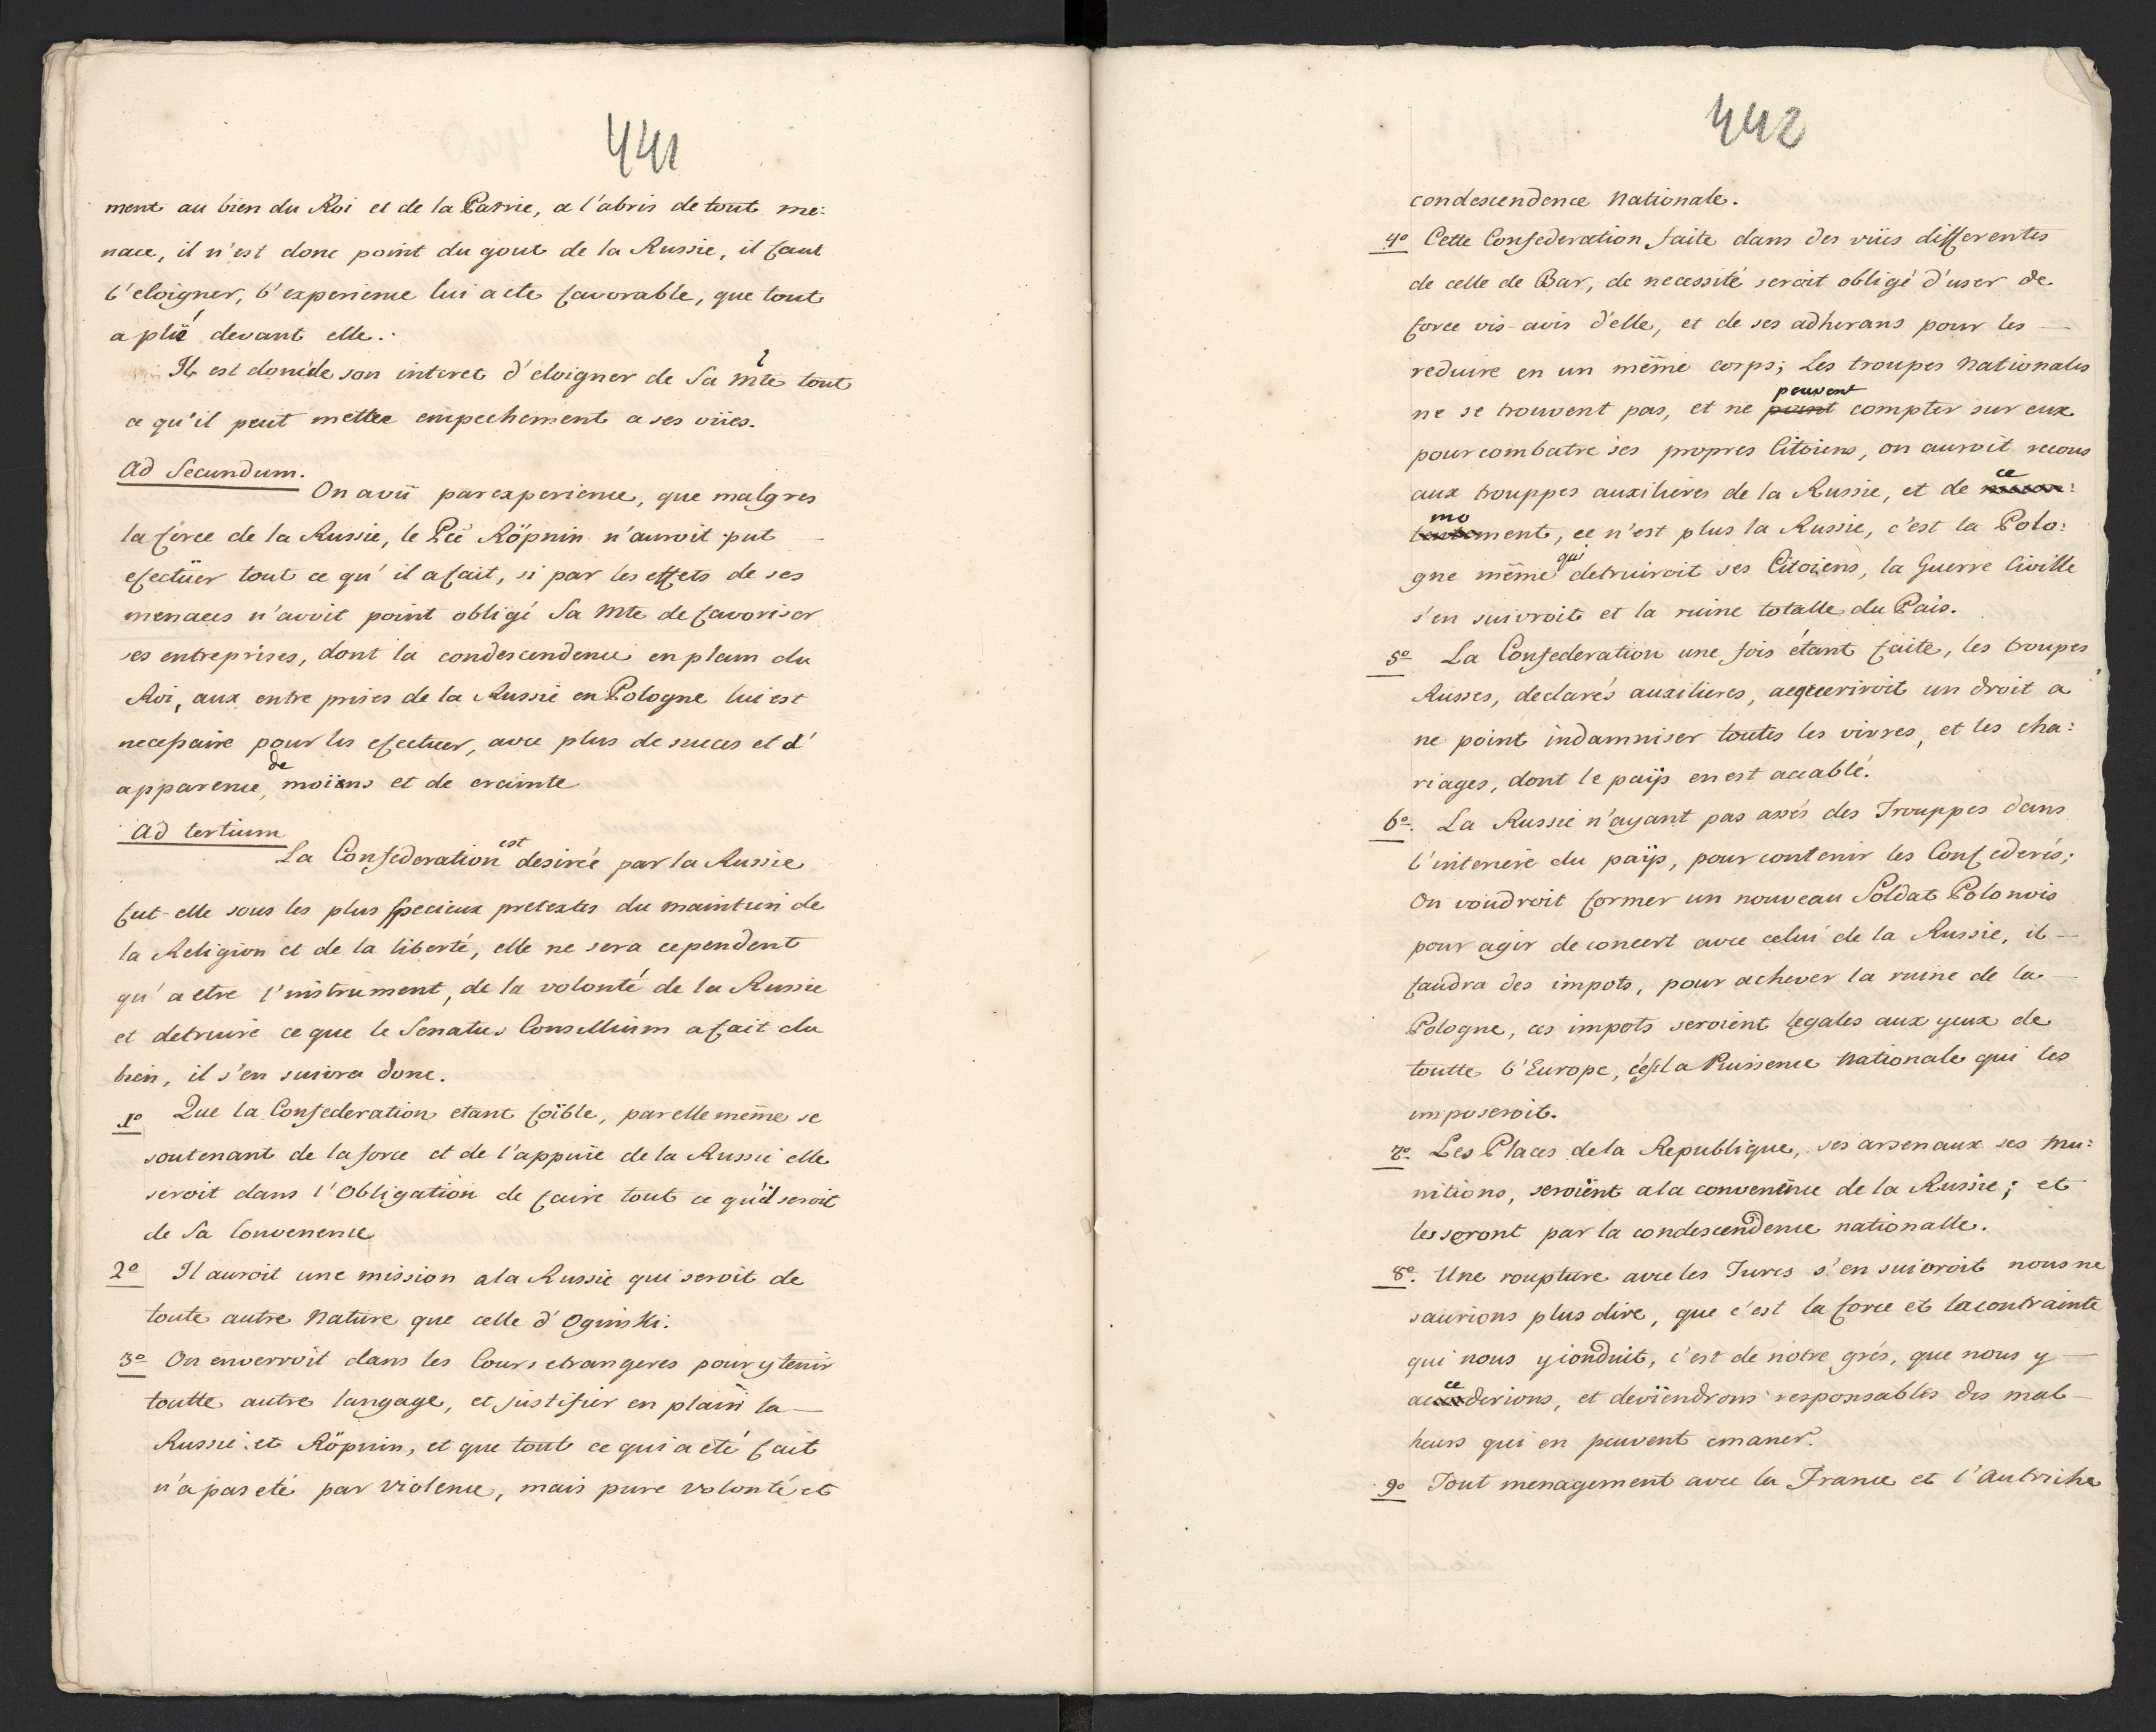 441
ment au bien du Roi et de la Patrie, a l'abris de tout me:
nace, il n'est donc point du gout de la Russie, il faut
l'eloigner, l'experience lui a ete favorable, que tout
a plié devant elle.
Il est donc de son interet d'eloigner de Sa Mte tout
ce qu'il peut mettre empechement a ses vües.
Ad Secundum.
On a vü par experience, que malgres
la force de la Russie, le Pce Röpnin n'auroit put
efectüer tout ce qu'il a fait, si par les effets de ses
menaces n'avoit point obligé Sa Mte de favoriser
ses entreprises, dont la condescendence en plein du
Roi, aux entre prises de la Russie en Pologne lui est
necessaire pour les efectuer, avec plus de succes et d'
apparence, de moïens et de crainte
Ad tertium
La Confederation est desirée par la Russie
fut-elle sous les plus specieux pretextes du maintien de
la Religion et de la liberté, elle ne sera cependent
qu'a etre l'instrument, de la volonté de la Russie
et detruire ce que le Senatus Consillium a fait du
bien, il s'en suivra donc.
1o Que la Confederation etant foïble, par elle même se
soutenant de la force et de l'appuïe de la Russie elle
seroit dans l'Obligation de faire tout ce qu'il seroit
de Sa Convenence
2o Il auroit une mission a la Russie qui seroit de
toute autre Nature que celle d'Oginski.
3o On enverroit dans les Cours etrangeres pour y tenir
toutte autre langage, et justifier en plain la
Russie et Röpnin, et que tout ce qui a eté fait
n'a pas eté par Violence, mais pure volonté et
442
condescendence Nationale.
4o Cette Confederation faite dans des vües differentes
de celle de Bar, de necessité seroit obligé d'user de
force vis-avis d'elle, et de ses adherans pour les
reduire en un même corps; Les troupes Nationales
ne se trouvent pas, et ne point peuvent compter sur eux
pour combatre ses propres Citoiens, on auroit recous
aux trouppes auxilieres de la Russie, et de ce
moment, ce n'est plus la Russie, c'est la Polo:
gne même qui detruiroit ses Citoiens, la Guerre Civille
s'en suivroit et la ruine totalle du Païs.
5o La Confederation une fois étant faite, les troupes
Russes, declarés auxilieres, acqueeriroit un droit a
ne point indamniser toutes les vivres, et les cha:
riages, dont le païs en est accablé.
6o. La Russie n'ayant pas assés des Trouppes dans
l'interiere du païs, pour contenir les Confederés;
On voudroit former un nouveau Soldat Polonois
pour agir de concert avec celui de la Russie, il
faudra des impots, pour achever la ruine de la
Pologne, ces impots seroient legales aux yeux de
toutte l'Europe, c'est la Puissence Nationale qui les
imposeroit.
7o. Les Places de la Republique, ses arsenaux ses Mu:
nitions, seroïent a la convenence de la Russie; et
les seront par la condescendence nationalle.
8o. Une roupture avec les Turcs s'en suivroit nous ne
saurions plus dire, que c'est la force et la contrainte
qui nous y conduit, c'est de notre grés, que nous y
accederions, et deviendrons responsables des mal
heurs qui en peuvent emaner.
9o Tout menagement avec la France et l'Autriche